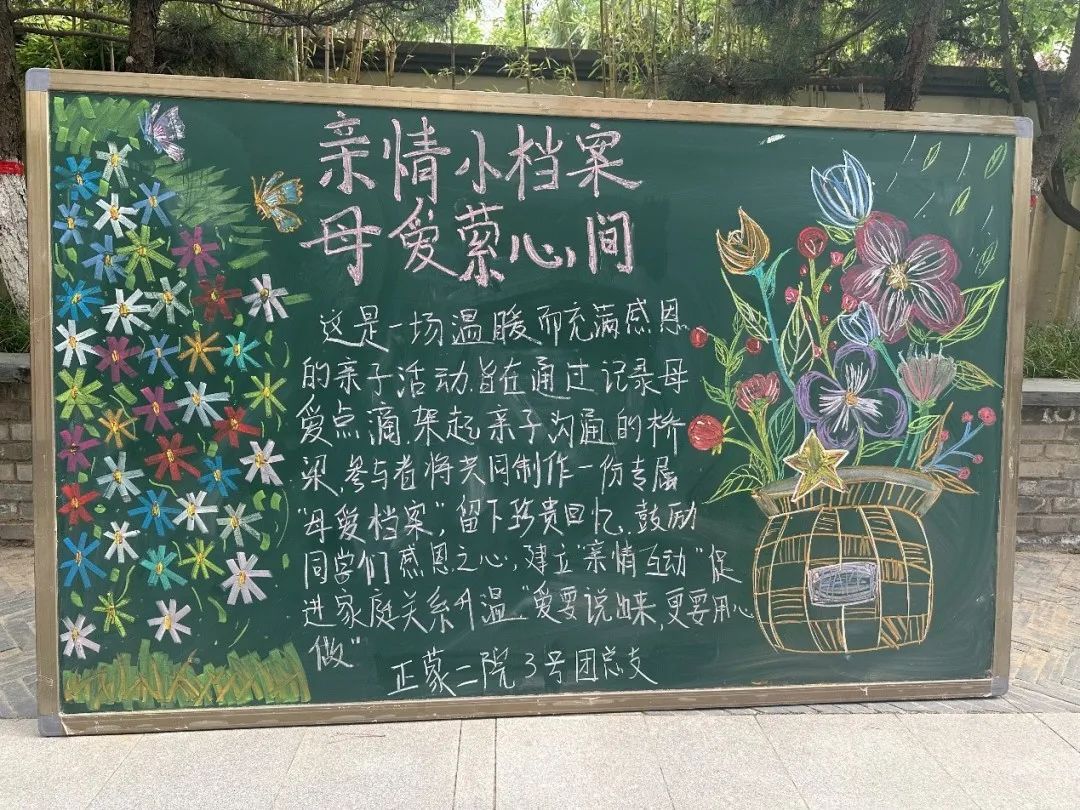 亲情小档案
母爱萦心间
这是一场温暖而充满感恩
的亲子活动旨在通过记录母
爱点滴,架起亲子沟通的桥
梁,参与者将共同制作一份专属
"母爱档案",留下珍贵回忆,鼓励
同学们感恩之心,建立"亲情互动"促
进家庭关系升温."爱要说出来,更要用心
做"
正蒙二院3号团总支